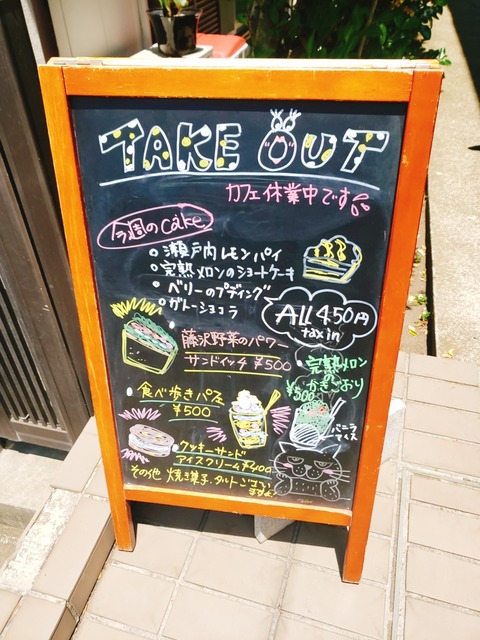 TAKE OUT
カフェ休業中です
今週のcake
瀬戸内レモンパイ
完熟メロンのショートケーキ
ベリーのプディング
ガトーショコラ
All 450円
tax in
藤沢野菜のパワー
サンドイッチ ¥500
完熟メロン
かきごおり
¥500
バニラ
アイス
食べ歩きパフェ
¥500
クッキーサンド
アイスクリーム¥400
その他 焼き菓子・タルトござい
ますよ